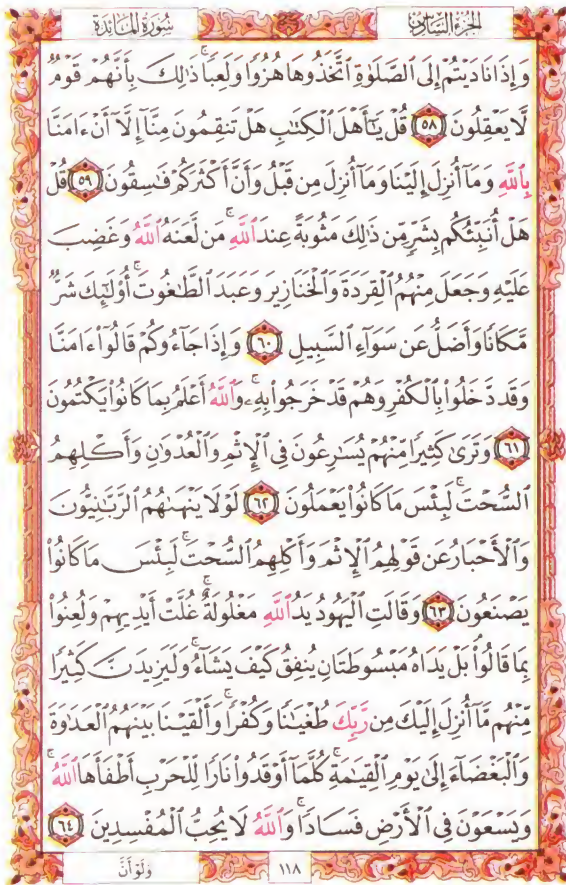 الجزء السادس
سورة المائدة
وَإِذَا نَادَيْتُمْ إِلَى ٱلصَّلَوٰةِ ٱتَّخَذُوهَا هُزُوًا وَلَعِبًا ۚ ذَٰلِكَ بِأَنَّهُمْ قَوْمٌ
لَّا يَعْقِلُونَ ٥٨ قُلْ يَٰٓأَهْلَ ٱلْكِتَٰبِ هَلْ تَنقِمُونَ مِنَّآ إِلَّآ أَنْ ءَامَنَّا
بِٱللَّهِ وَمَآ أُنزِلَ إِلَيْنَا وَمَآ أُنزِلَ مِن قَبْلُ وَأَنَّ أَكْثَرَكُمْ فَٰسِقُونَ ٥٩ قُلْ
هَلْ أُنَبِّئُكُم بِشَرٍّ مِّن ذَٰلِكَ مَثُوبَةً عِندَ ٱللَّهِ ۚ مَن لَّعَنَهُ ٱللَّهُ وَغَضِبَ
عَلَيْهِ وَجَعَلَ مِنْهُمُ ٱلْقِرَدَةَ وَٱلْخَنَازِيرَ وَعَبَدَ ٱلطَّٰغُوتَ ۚ أُو۟لَٰٓئِكَ شَرٌّ
مَّكَانًا وَأَضَلُّ عَن سَوَآءِ ٱلسَّبِيلِ ٦٠ وَإِذَا جَآءُوكُمْ قَالُوٓا۟ ءَامَنَّا
وَقَد دَّخَلُوا۟ بِٱلْكُفْرِ وَهُمْ قَدْ خَرَجُوا۟ بِهِۦ ۚ وَٱللَّهُ أَعْلَمُ بِمَا كَانُوا۟ يَكْتُمُونَ
٦١ وَتَرَىٰ كَثِيرًا مِّنْهُمْ يُسَٰرِعُونَ فِى ٱلْإِثْمِ وَٱلْعُدْوَٰنِ وَأَكْلِهِمُ
ٱلسُّحْتَ ۚ لَبِئْسَ مَا كَانُوا۟ يَعْمَلُونَ ٦٢ لَوْلَا يَنْهَىٰهُمُ ٱلرَّبَّٰنِيُّونَ
وَٱلْأَحْبَارُ عَن قَوْلِهِمُ ٱلْإِثْمَ وَأَكْلِهِمُ ٱلسُّحْتَ ۚ لَبِئْسَ مَا كَانُوا۟
يَصْنَعُونَ ٦٣ وَقَالَتِ ٱلْيَهُودُ يَدُ ٱللَّهِ مَغْلُولَةٌ ۚ غُلَّتْ أَيْدِيهِمْ وَلُعِنُوا۟
بِمَا قَالُوا۟ ۘ بَلْ يَدَاهُ مَبْسُوطَتَانِ يُنفِقُ كَيْفَ يَشَآءُ ۚ وَلَيَزِيدَنَّ كَثِيرًا
مِّنْهُم مَّآ أُنزِلَ إِلَيْكَ مِن رَّبِّكَ طُغْيَٰنًا وَكُفْرًا ۚ وَأَلْقَيْنَا بَيْنَهُمُ ٱلْعَدَٰوَةَ
وَٱلْبَغْضَآءَ إِلَىٰ يَوْمِ ٱلْقِيَٰمَةِ ۚ كُلَّمَآ أَوْقَدُوا۟ نَارًا لِّلْحَرْبِ أَطْفَأَهَا ٱللَّهُ ۚ
وَيَسْعَوْنَ فِى ٱلْأَرْضِ فَسَادًا ۚ وَٱللَّهُ لَا يُحِبُّ ٱلْمُفْسِدِينَ ٦٤
١١٨
وَلَوْ أَنَّ